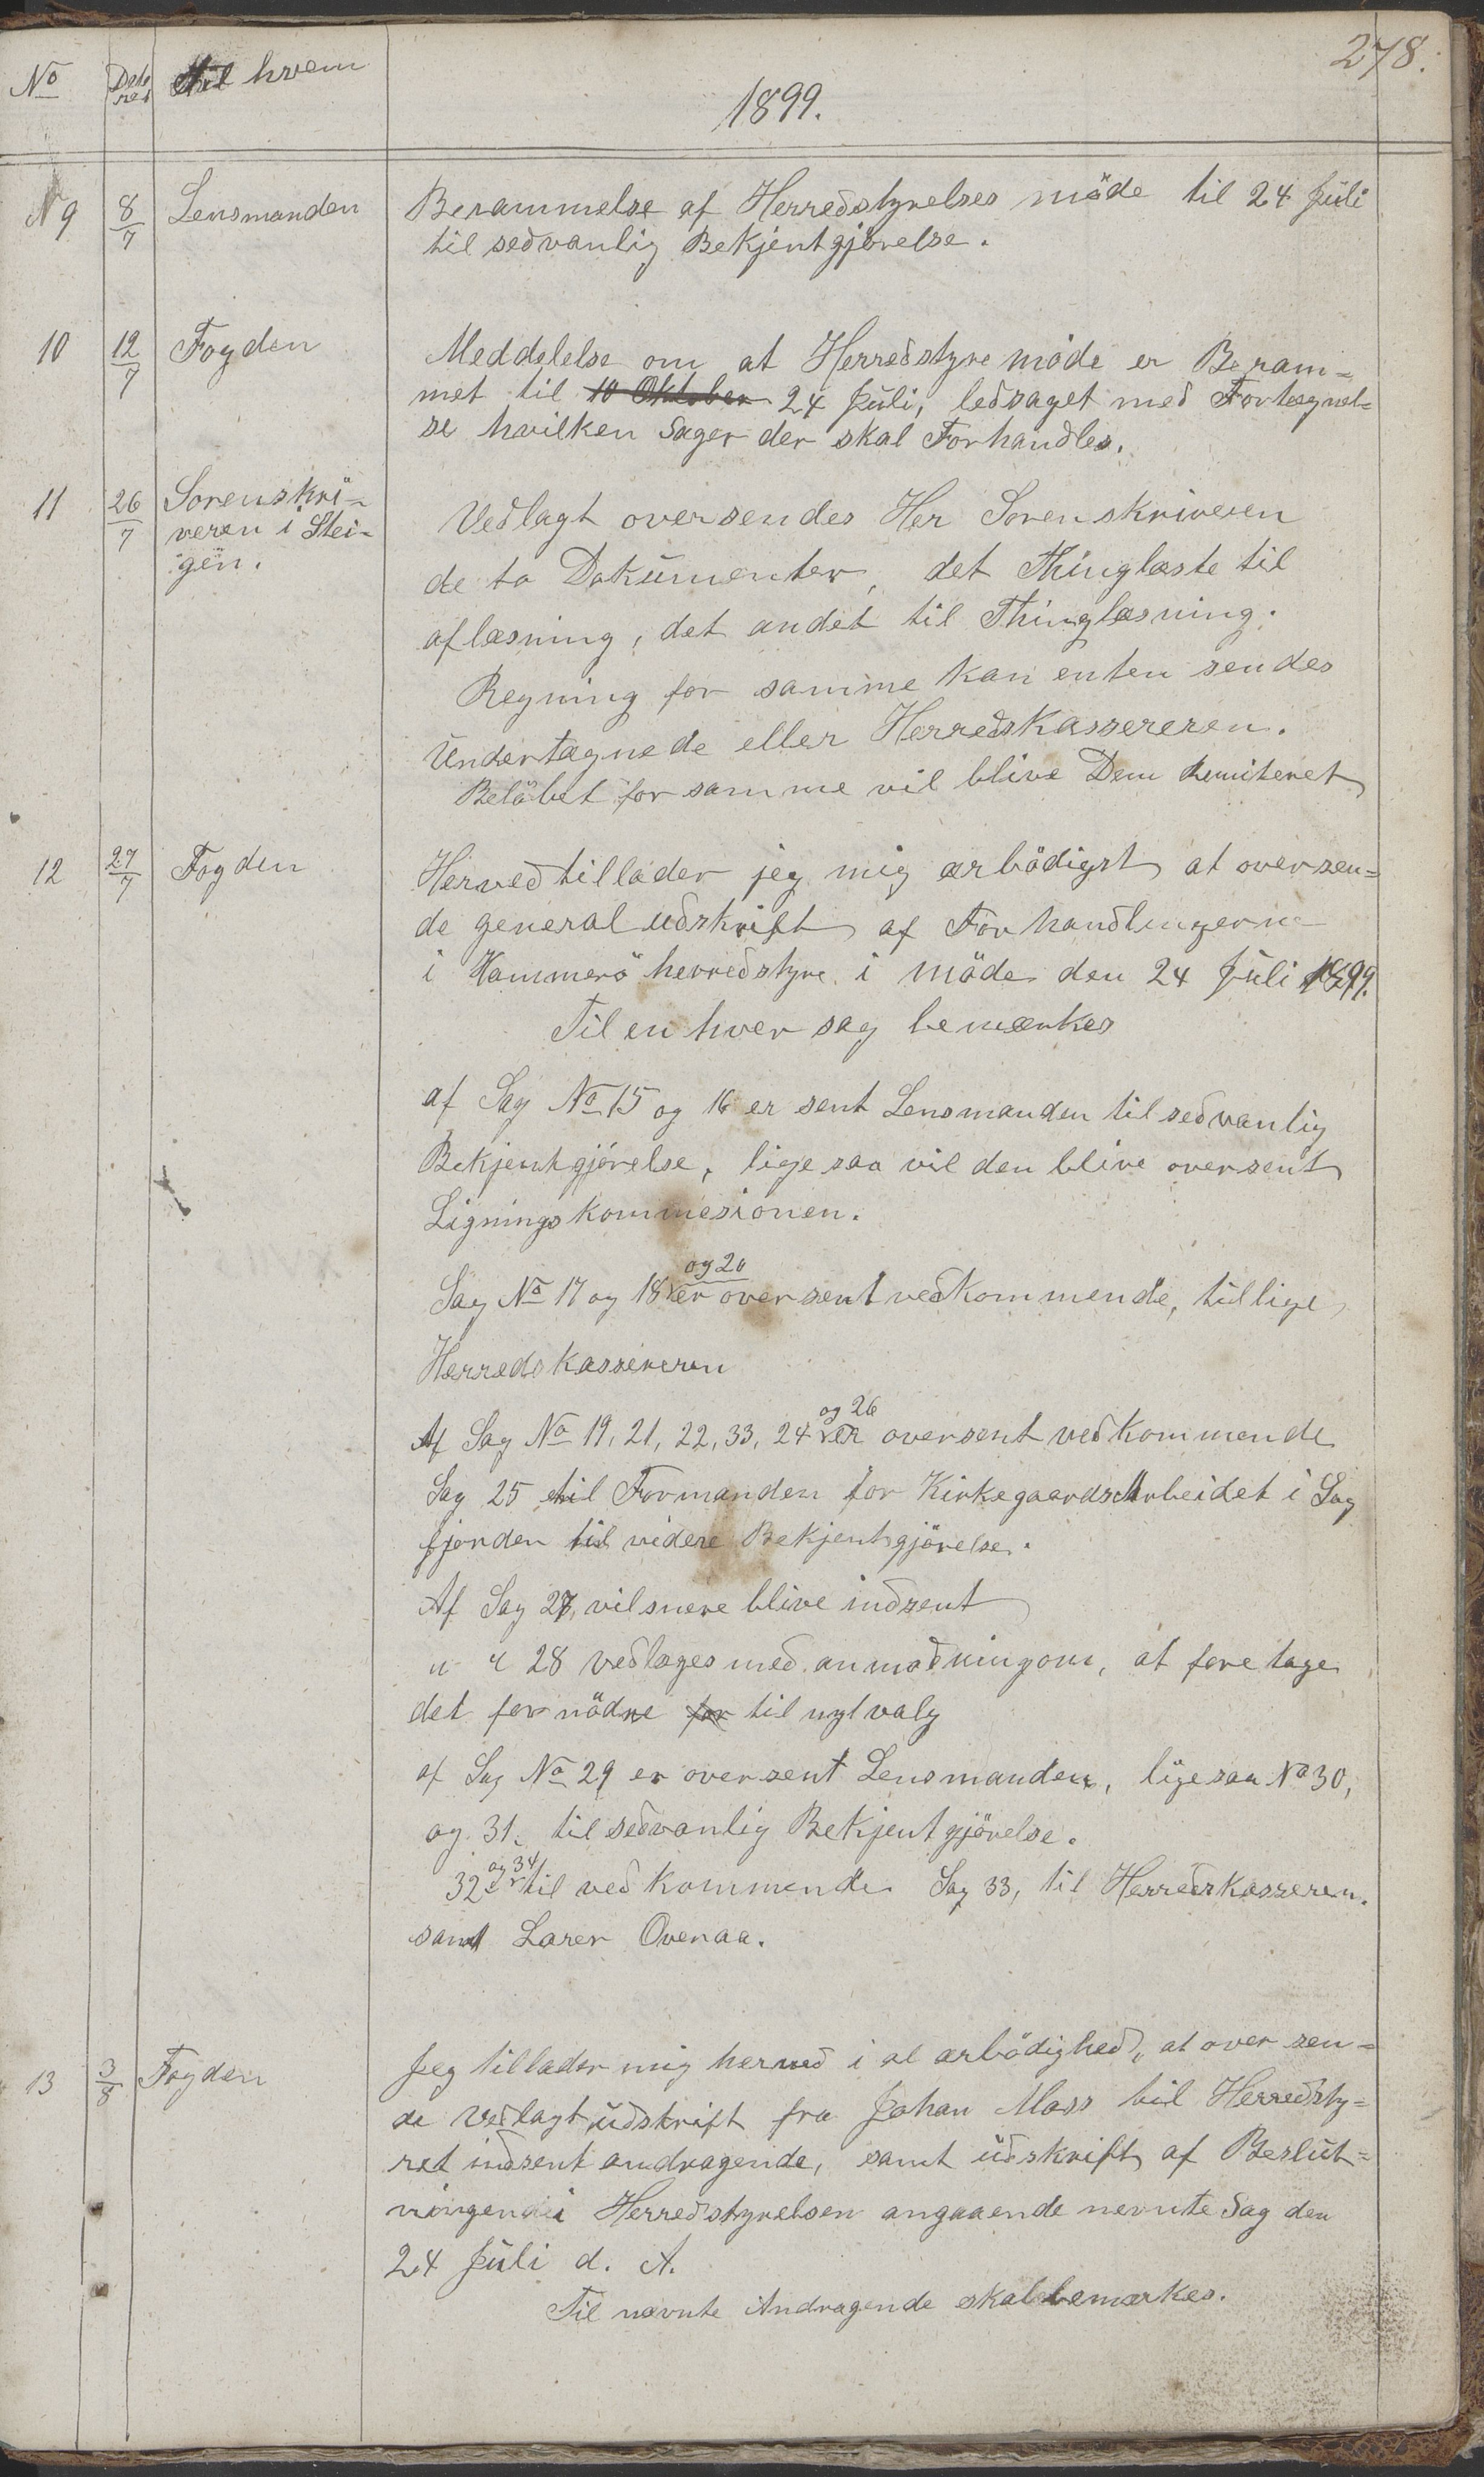 278.
No Dato red Til hvem
1899.
N 9 8/7 Lensmanden Berammelse af Herredstyrelses möde til 24 Juli
til sedvanlig Bekjentgjörelse.
10 12/7 Fogden Meddelelse om at Herredstyre möde er Beram=
met til 10 Oktober 24 Juli, ledsaget med Fortegnel=
se hvilken Sager der skal Forhandles.
11 26/7 Sorenskri=
veren i Stei=
gen.
Vedlagt oversendes Her Sorenskriveren
de to Dokumenter, det Thinglæste til
aflæsning, det andet til Thinglæsning.
Regning for samme kan enten sendes
Undertegnede eller Herredskassereren.
Belöbet for samme vil blive Dem Remiteret
12 27/7 Fogden Herved tillader jeg mig ærbödigst at oversen=
de general udskrift af Forhandlingerne
i Hammerö herredstyre i möde den 24 Juli 1899.
Til en hver sag bemærkes
af Sag No 15 og 16 er sent Lensmanden til sedvanlig
Bekjentgjörelse, lige saa vil den blive oversent
Ligningskommesionen.
og 20
Sag No 17 og 18 er oversent vedkommende, tillige
Herredskassereren
og 26
Af Sag No 19, 21, 22, 33, 24 er oversent vedkommende
Sag 25 til Formanden for Kirkegaards Arbeidet i Sag
fjorden til videre Bekjentgjörelse.
Af Sag 27, vil snere blive indsent
" " 28 vedlæges med anmodning om, at foretage
det fornödne for til nyt valg
af Sag No 29 er oversent Lensmanden, lige saa No 30,
og 31. til sedvanlig Bekjentgjörelse.
og 34
32 til vedkommende Sag 33, til Herredskasseren.
samt Larer Ovenaa.
13 3/8 Fogden Jeg tillader mig herved i al ærbödighed, at over sen=
de Vedlagt udskrift fra Johan Moss til Herredsty=
ret indsent andragende, samt udskrift af Beslut=
ningen i Herredstyrelsen angaaende nevnte Sag den
24 Juli d. A.
Til nævnte Andragende skal bemærkes.